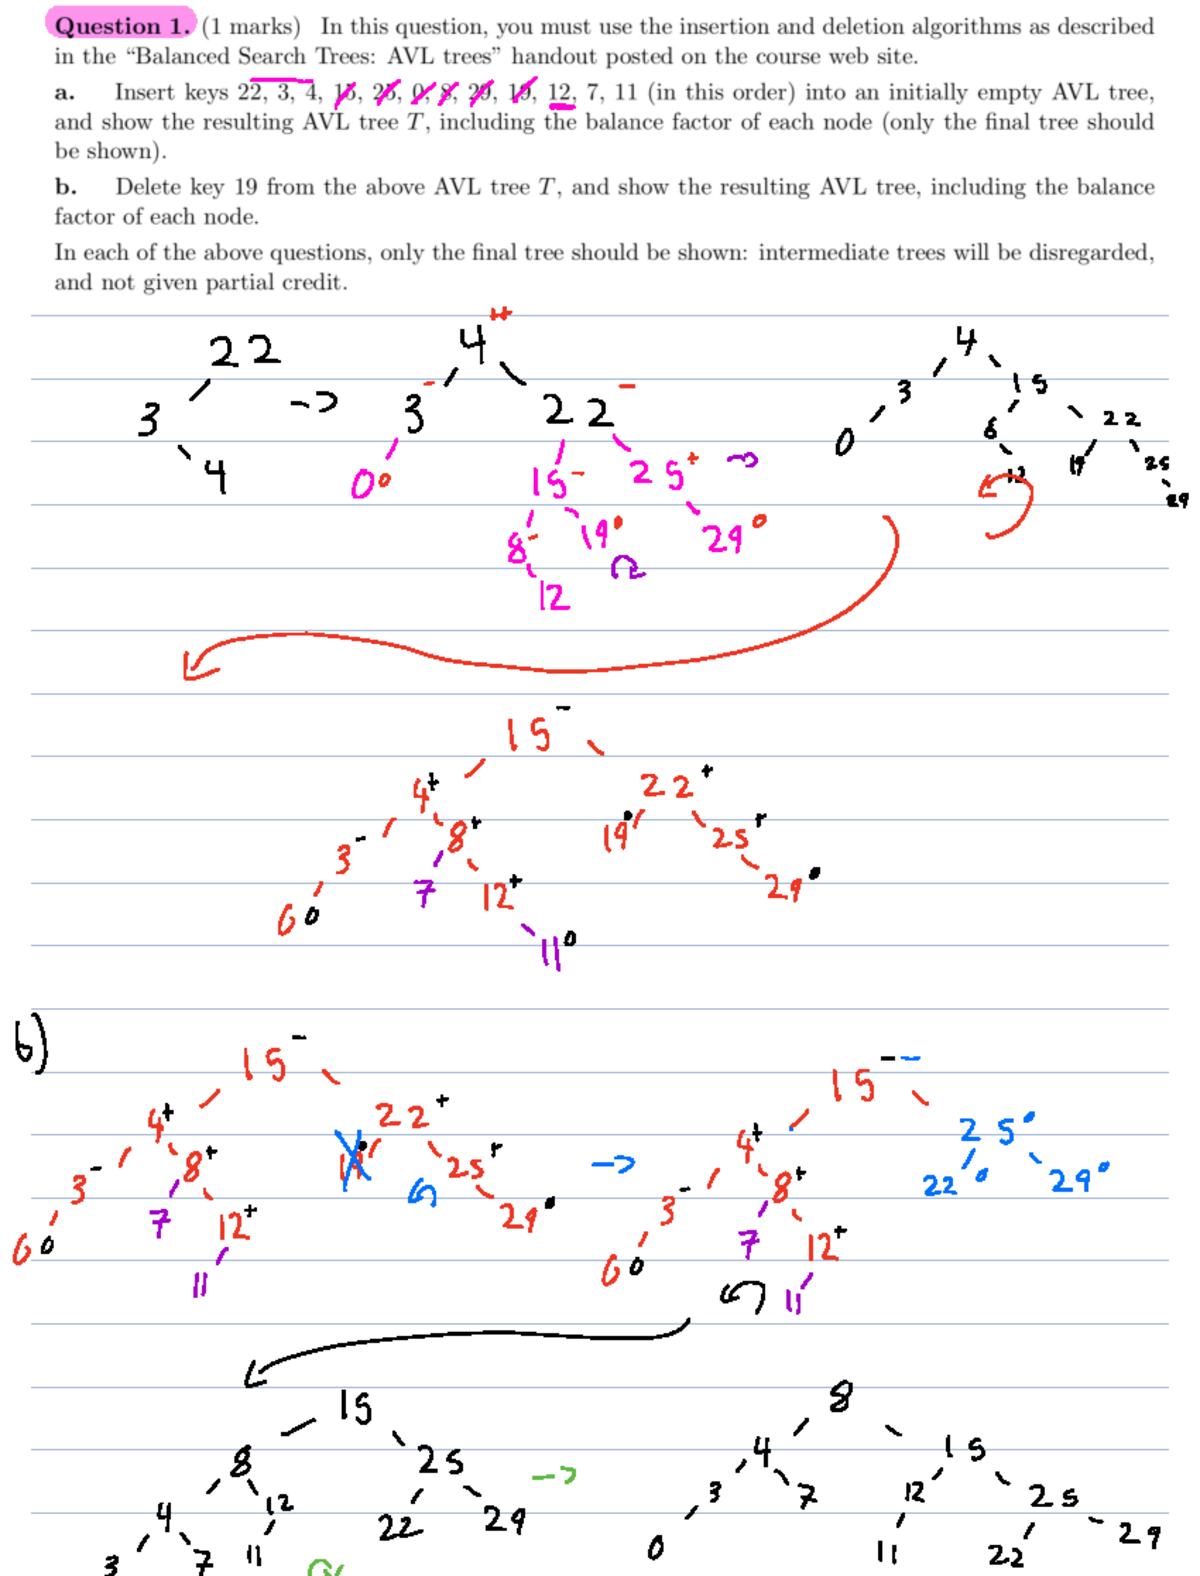 Question 1. (1 marks) In this question, you must use the insertion and deletion algorithms as described
in the “Balanced Search Trees: AVL trees” handout posted on the course web site.
a. Insert keys 22, 3, 4, 15, 25, 0, 8, 29, 19, 12, 7, 11 (in this order) into an initially empty AVL tree,
and show the resulting AVL tree T, including the balance factor of each node (only the final tree should
be shown).
b. Delete key 19 from the above AVL tree T, and show the resulting AVL tree, including the balance
factor of each node.
In each of the above questions, only the final tree should be shown: intermediate trees will be disregarded,
and not given partial credit.
22 4 ++ 4
3 -> 3 - 22 - 3 15
4 0 0 15 - 25 + 0 8 22
8 - 19 0 29 0 12 19 25
12 29
15 -
4 + 22 +
3 - 8 + 19 0 25 +
0 0 7 12 + 29 0
11 0
b)
15 - 15 - -
4 + 22 + 4 + 25 0
3 - 8 + 25 + -> 3 - 8 + 22 0 29 0
0 0 7 12 + 29 0 0 0 7 12 +
11 11
15 8
8 25 -> 4 15
4 12 22 29 3 7 12 25
3 7 11 0 11 22 29